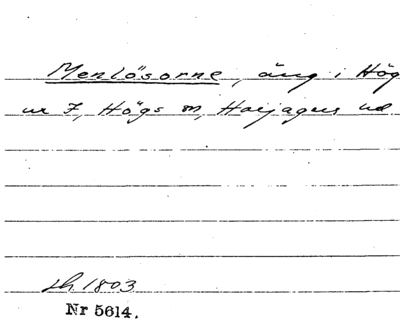 Menlösorne, äng i Hög
nr 7, Högs sn, Harjagers hd
Lh. 1803
Nr 5614.